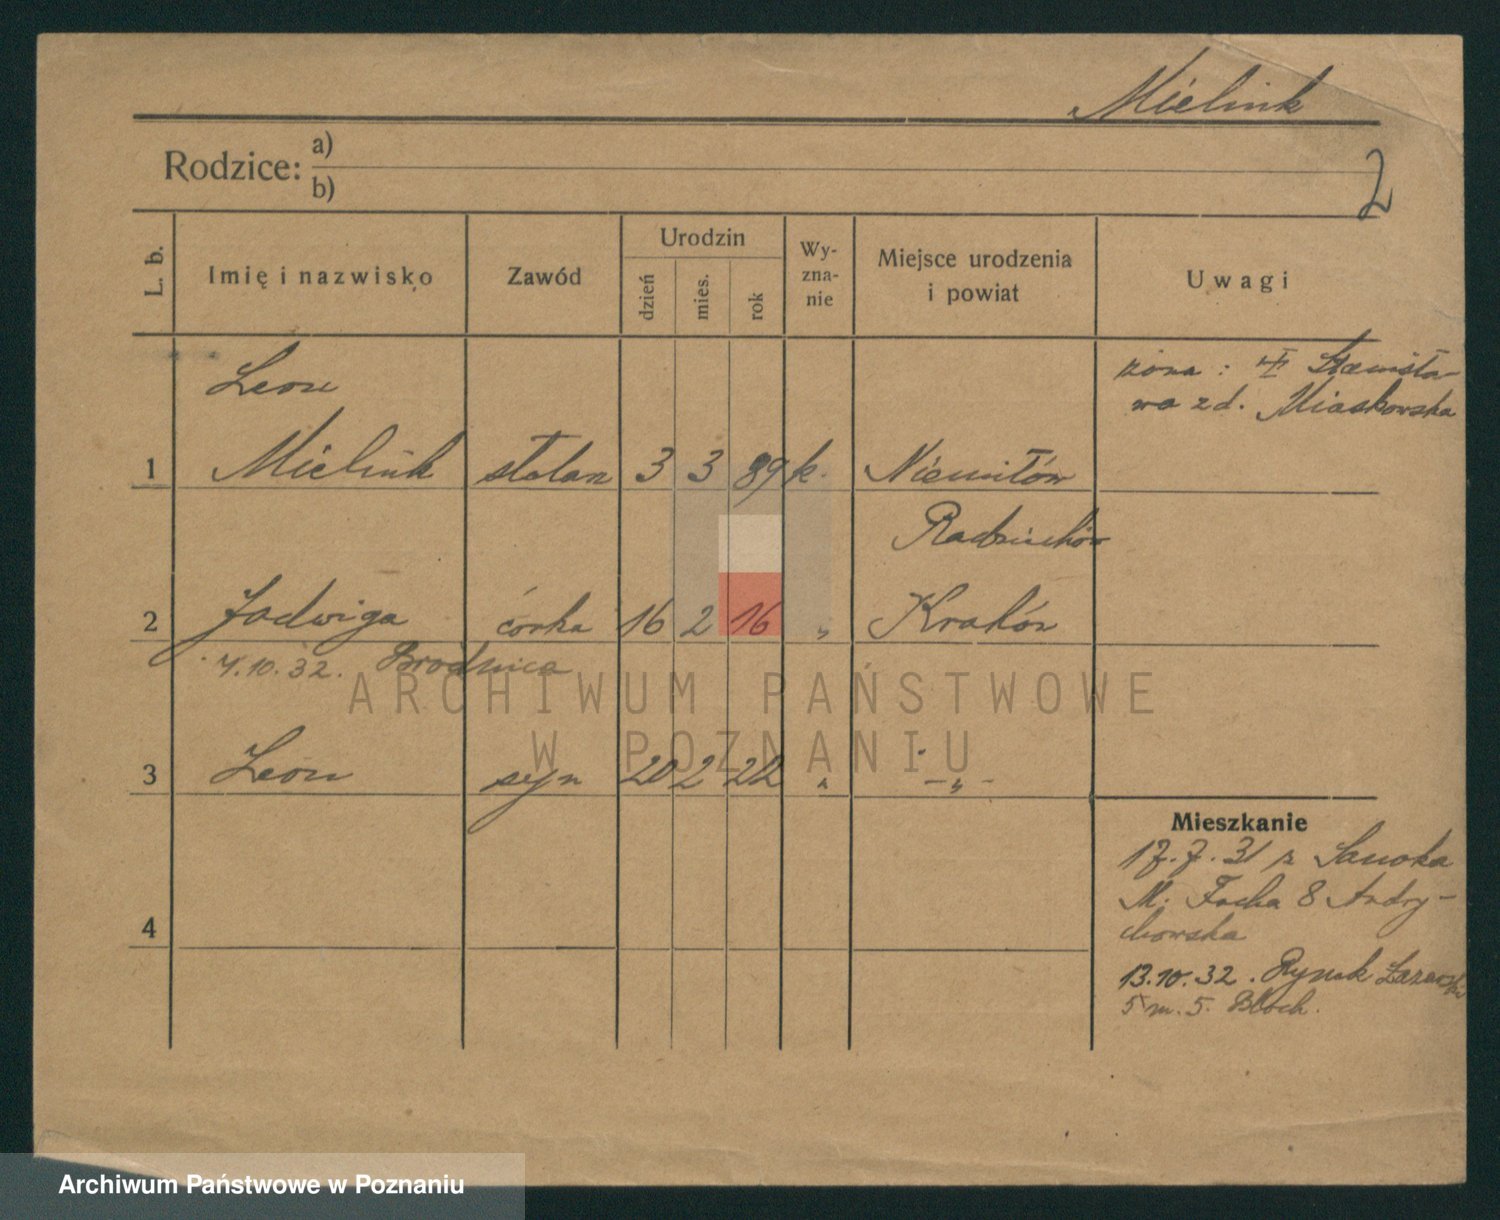 Mielink
2
Rodzice: a)
b)
L. b.
Imię i nazwisko
Zawód
Urodzin
dzień
mies.
rok
Wy-
zna-
nie
Miejsce urodzenia
i powiat
Uwagi
żona : Stanisła-
wa z d. Miaskowska
Leon
1 Mielink stolarz 3 3 89 k. Niemiłów
Radziechów
2 Jadwiga córka 16 2 16 " Kraków
4.10.32. Brodnica
3 Leon syn 20 2 22 " -"-
4
Mieszkanie
17.7.31 z Sanoka
M. Focha 8 Andry-
chowska
13.10.32. Rynek Łazarski
5 m. 5. Bloch.
ARCHIWUM PAŃSTWOWE
W POZNANIU
Archiwum Państwowe w Poznaniu